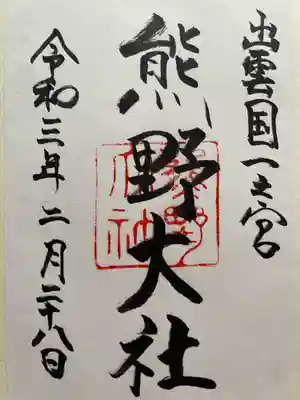 出雲国一之宮
熊野大社
令和三年二月二十八日
熊野大社